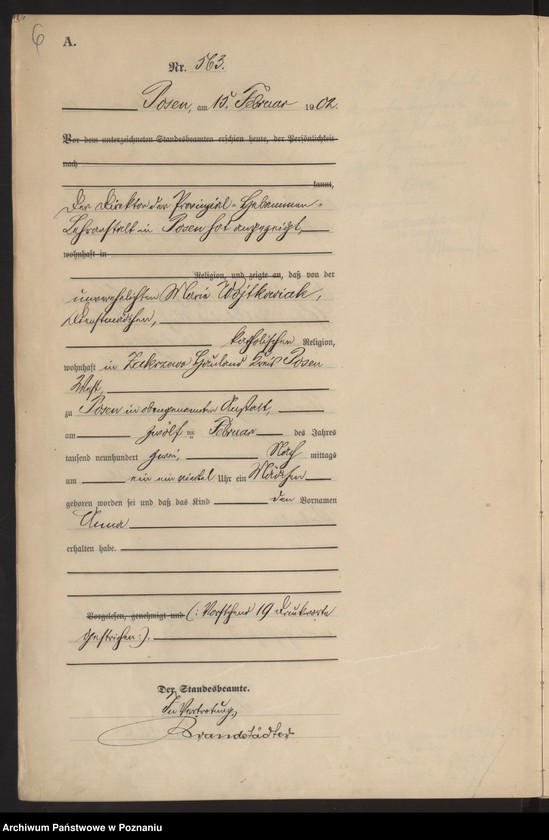 6
A.
Nr. 563.
Posen, am 15. Februar 1902.
Vor dem unterzeichneten Standesbeamten erschien heute, der Persönlichkeit
nach
kannt,
Der Direktor der Provinzial-Hebammen-
Lehranstalt in Posen hat angezeigt,
wohnhaft in
Religion, und zeigte an, daß von der
unverehelichten Marie Wojtkowiak,
Dienstmädchen,
katholischer Religion,
wohnhaft in Zakrzewo Hauland Kreis Posen
West,
zu Posen in obengenannter Anstalt,
am zwölften Februar des Jahres
tausend neunhundert zwei, Nach mittags
um ein ein viertel Uhr ein Mädchen
geboren worden sei und daß das Kind den Vornamen
Anna
erhalten habe.
Vorgelesen, genehmigt und (: Vorstehend 19 Druckworte
gestrichen :).
Der Standesbeamte.
In Vertretung,
Brandstädter
Archiwum Państwowe w Poznaniu